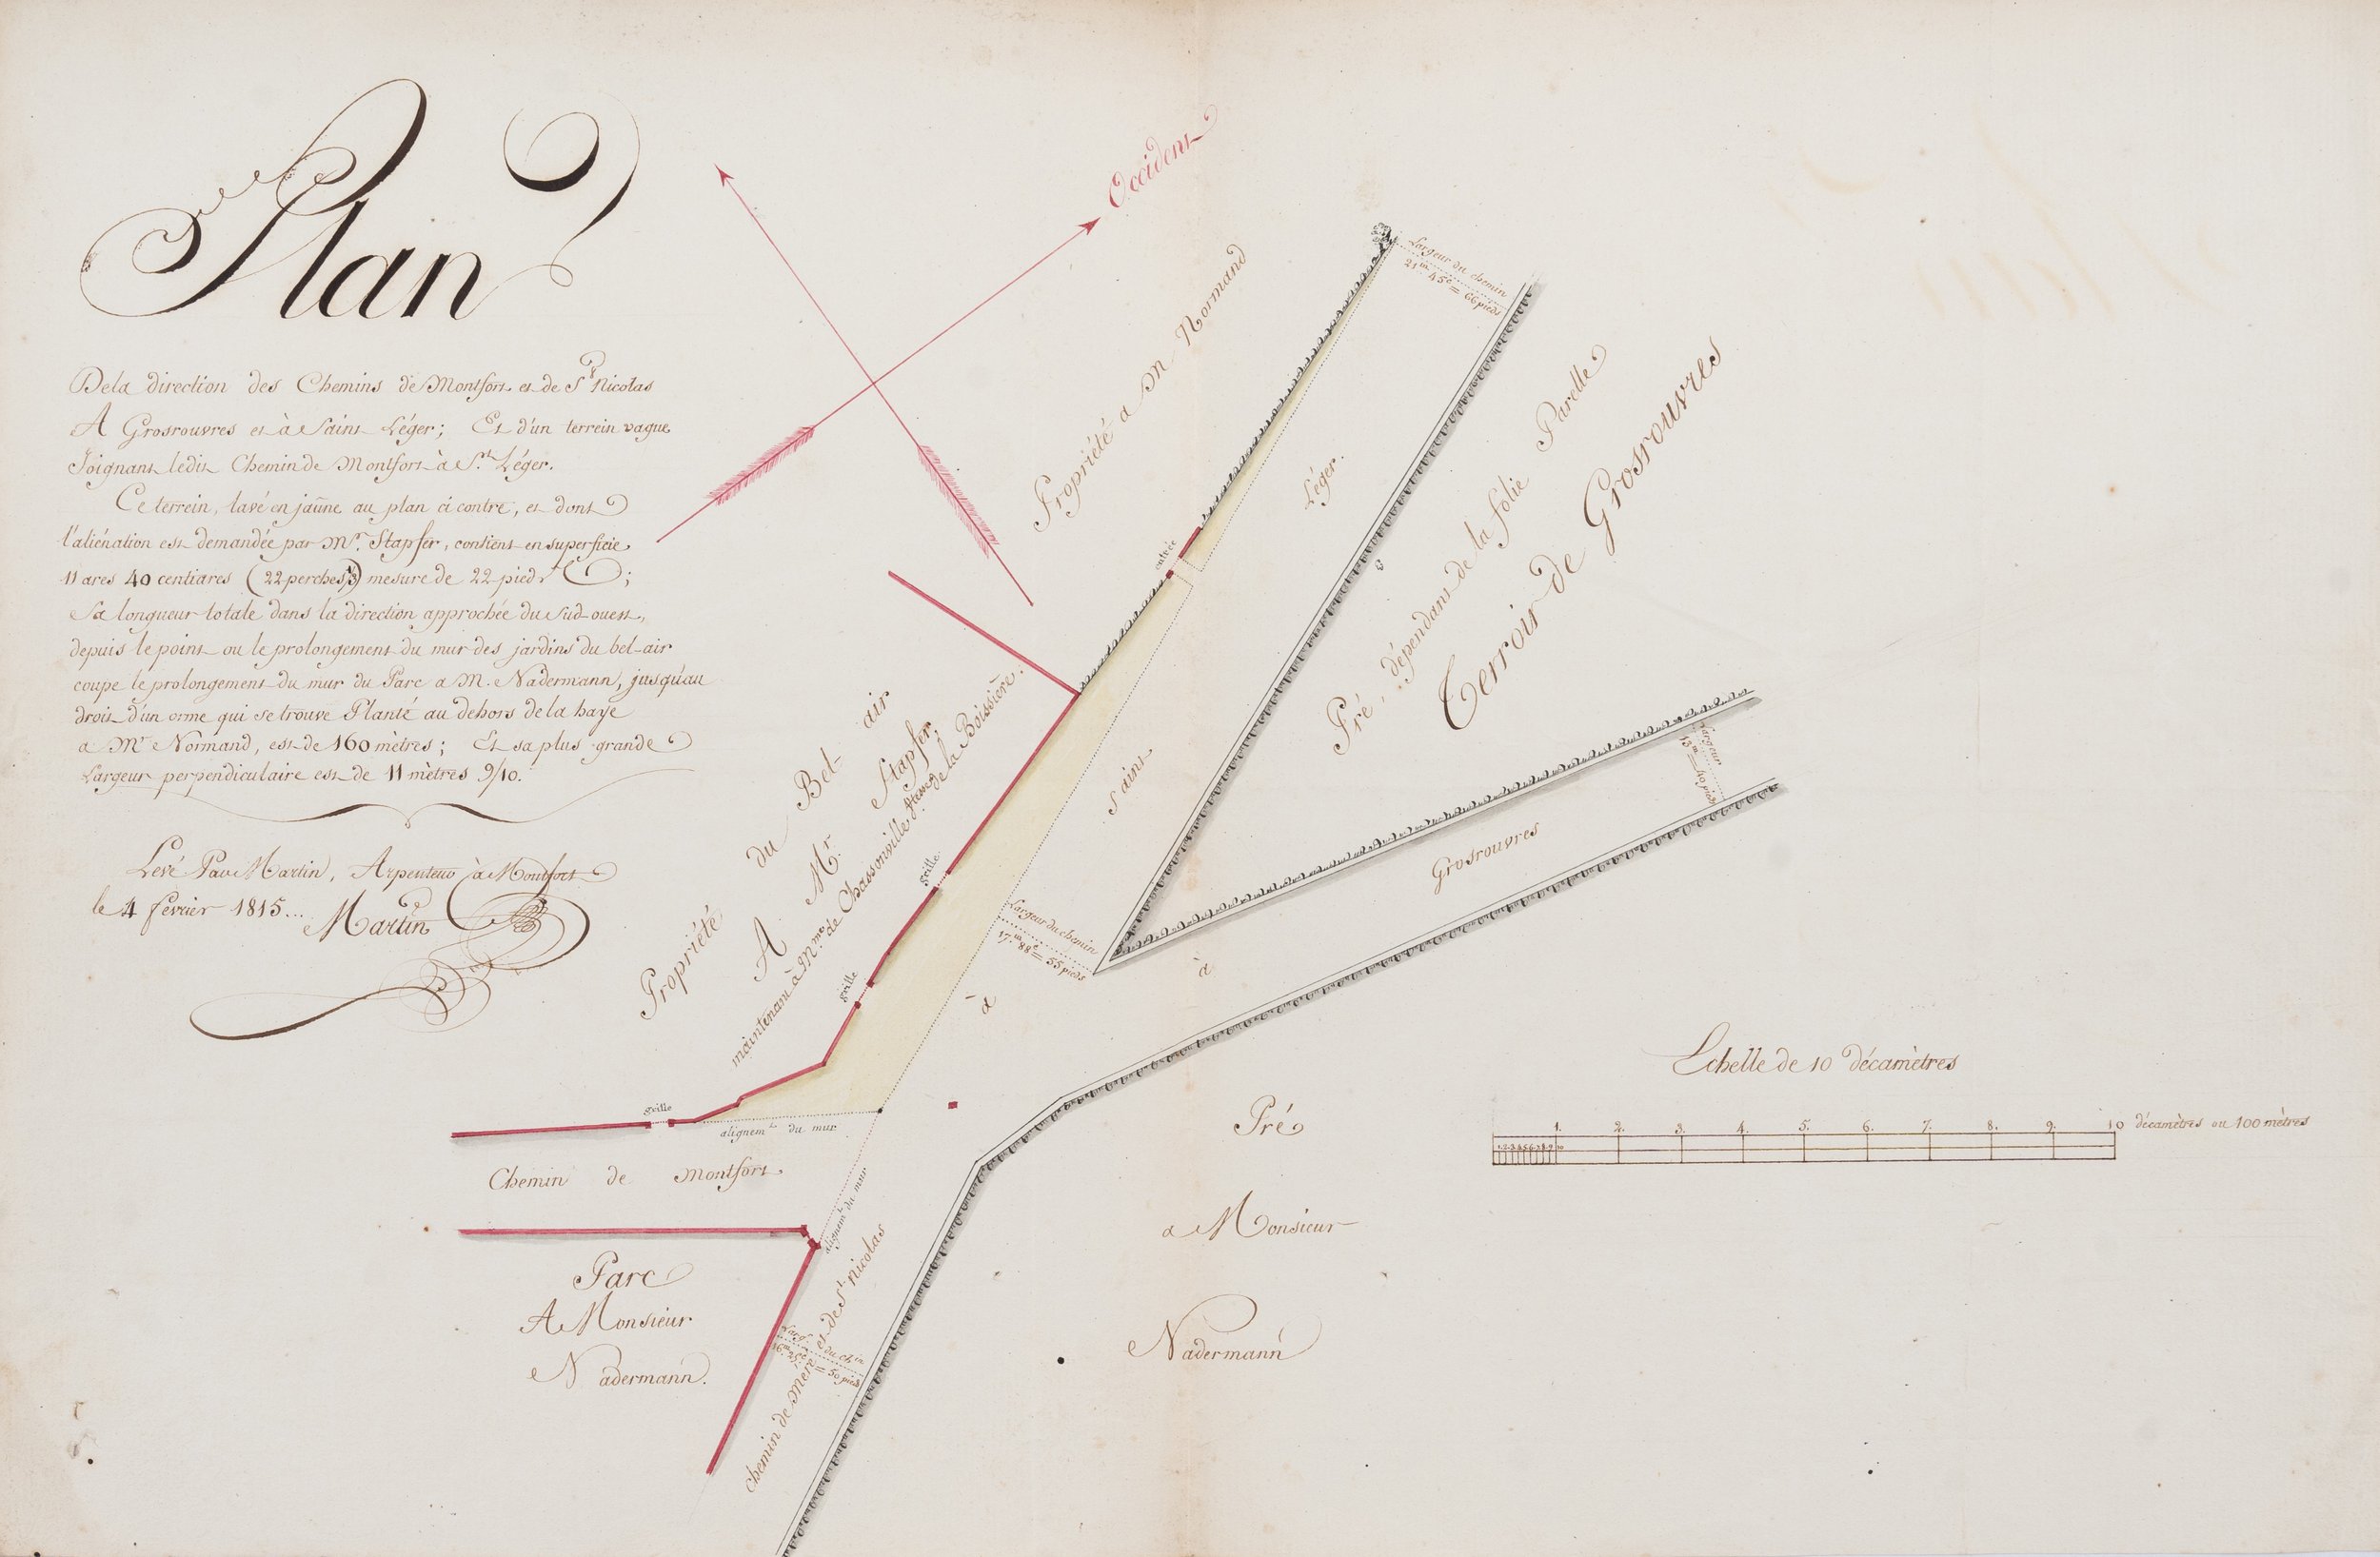 Plan
De la direction des Chemins de Montfort et de St Nicolas
A Grosrouvres et à Saint Léger; Et d'un terrein vague
Joignant ledit Chemin de Montfort à St. Léger.
Ce terrein, lavé en jaune au plan ci contre, et dont
l'aliénation est demandée par Mr. Stapfer, contient en superficie
11 ares 40 centiares (22 perches 1/3) mesure de 22 pieds;
Sa longueur totale dans la direction approchée du Sud-ouest,
depuis le point ou le prolongement du mur des jardins du bel-air
coupe le prolongement du mur du Parc a M. Nadermann, jusqu'au
droit d'un orme qui se trouve Planté au dehors de la haye
a Mr Normand, est de 160 mètres; Et sa plus grande
Largeur perpendiculaire est de 11 mètres 9/10.
Levé Par Martin, Arpenteur à Montfort
le 4 fevrier 1815...
Martin
Occident
Propriété a M Normand
Largeur du chemin
21m 45c = 66 pieds
entrée
Léger.
Saint
à
Pré, dépendant de la folie Parelle
Terroir de Grosrouvres
Largeur
13m = 40 pieds
Grosrouvres
à
Propriété du Bel-air
A Mr. Stapfer,
maintenant à Mme. de Chassonville de la Boissière.
grille
grille
grille
Largeur du chemin
17m 88c = 55 pieds
alignemt. du mur
Chemin de Montfort
alignemt. du mur
Parc
A Monsieur
Nadermann.
chemin de Meré et de St. Nicolas
Larg. du chin
16m 25c = 50 pieds
Pré
a Monsieur
Nadermann
Echelle de 10 décamètres
1 2 3 4 5 6 7 8 9 10
1. 2. 3. 4. 5. 6. 7. 8. 9. 10 décamètres ou 100 mètres